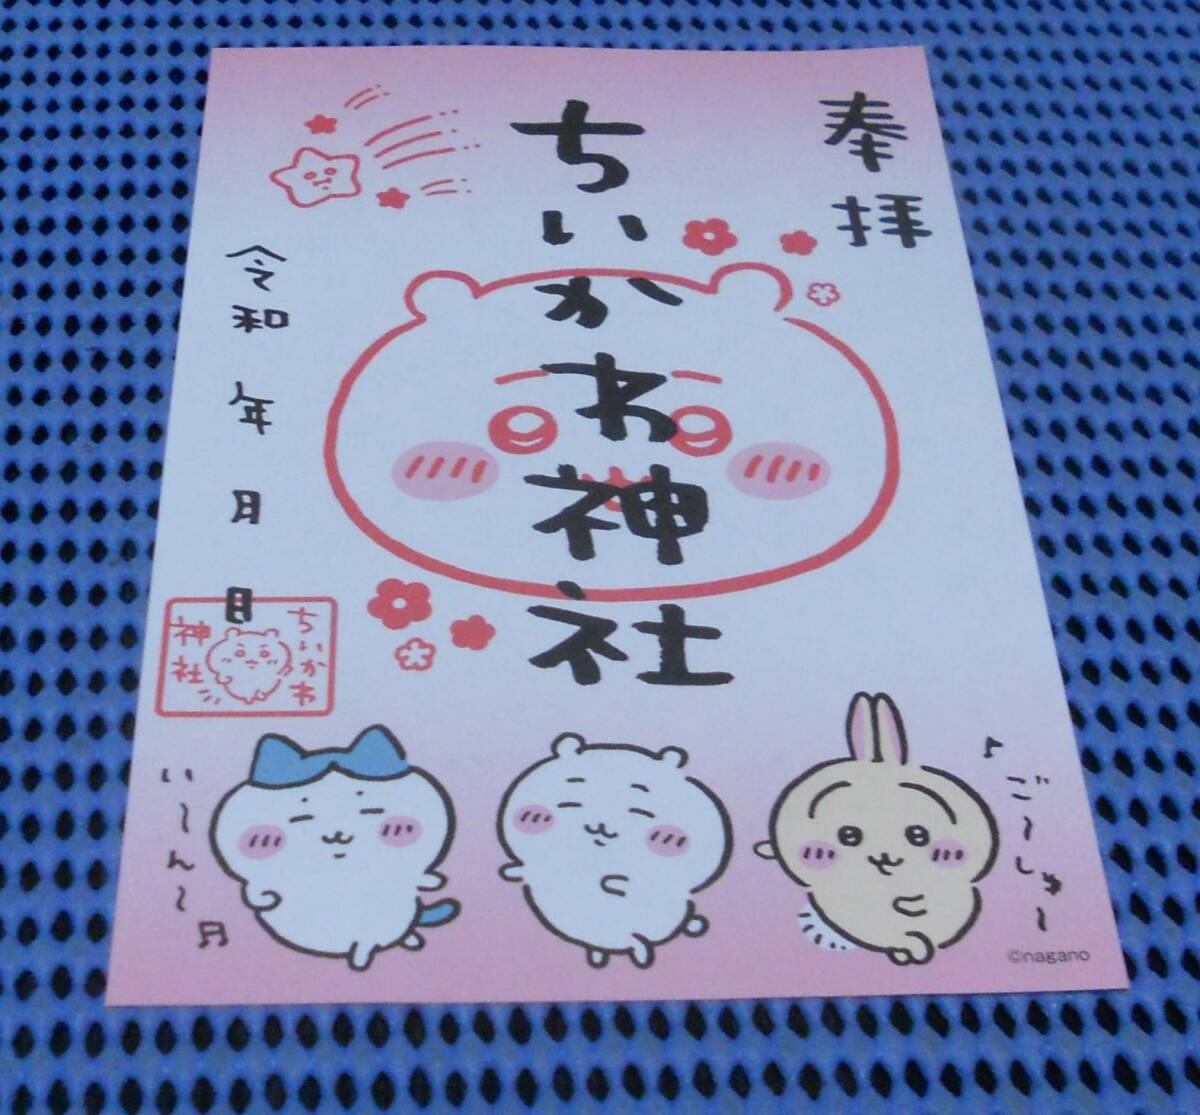 奉拝
ちいかわ神社
令和 年 月 日
ちいかわ
神社
い〜ん〜♬
♪ご〜しゅ〜
©nagano